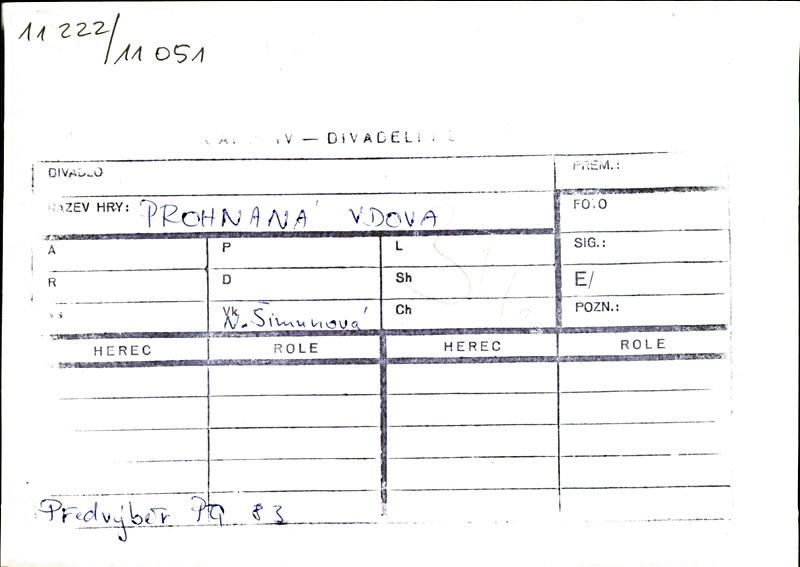 11 222/11 051
— DIVADEL
DIVADLO
PREM.:
NÁZEV HRY: PROHNANÁ VDOVA
FOTO
A P L SIG.:
R D Sh E/
Vk N. Šimunová Ch POZN.:
HEREC ROLE HEREC ROLE
Předvýběr PQ 83